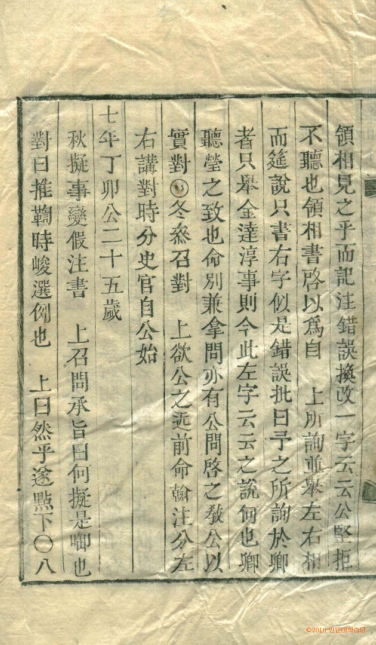 領相見之乎而記注錯誤換改一字云云公堅拒
不聽也領相書啓以爲自　上所詢並舉左右相
而筵說只書右字似是錯誤批曰予之所詢於卿
者只舉金達淳事則今此左字云云之說何也卿
聽瑩之致也命別兼拿問亦有公問啓之敎公以
實對○冬叅召對　上欲公之近前命翰注分左
右講對時分史官自公始
七年丁卯公二十五歲
秋擬事變假注書　上召問承旨曰何擬是卿也
對曰推鞫時峻選例也　上曰然乎遂點下○八